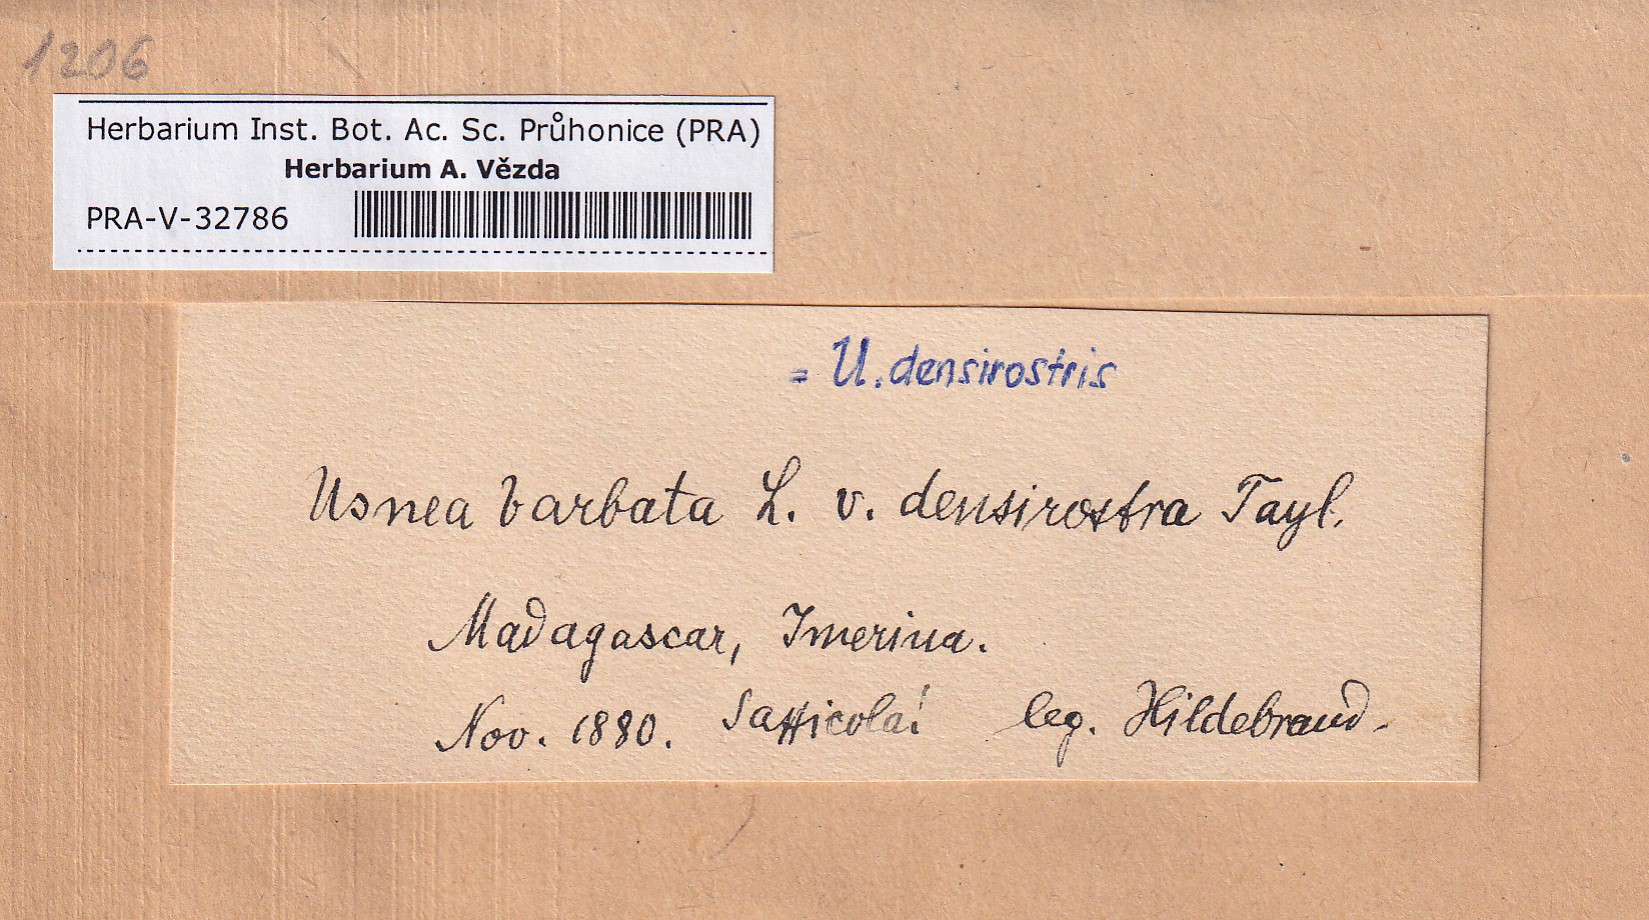 1206
Herbarium Inst. Bot. Ac. Sc. Průhonice (PRA)
Herbarium A. Vězda
PRA-V-32786
= U. densirostris
Usnea barbata L. v. densirostra Tayl.
Madagascar, Imerina.
Nov. 1880. Saxicola! leg. Hildebrand.